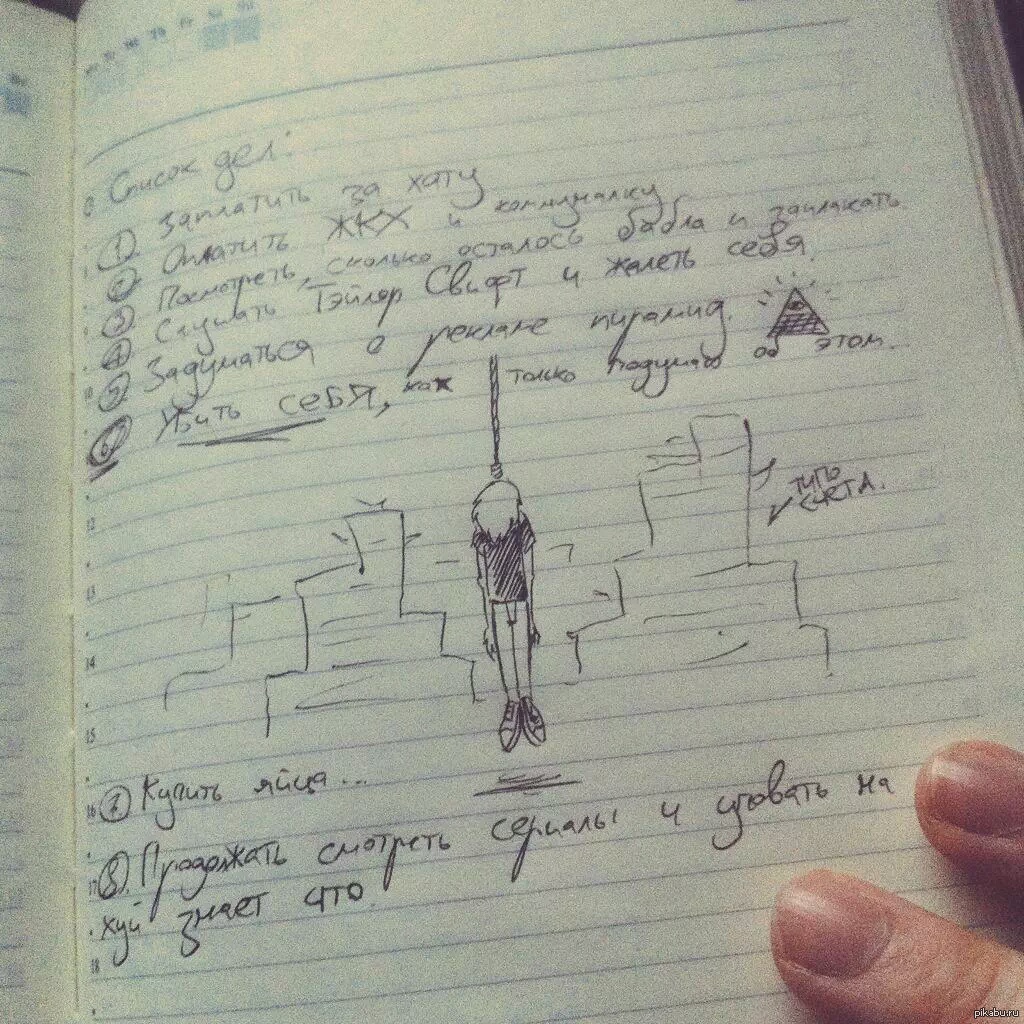 Список дел:
① Заплатить за хату
② Оплатить ЖКХ и коммуналку
③ Посмотреть, сколько осталось бабла и заплакать.
④ Слушать Тэйлор Свифт и жалеть себя.
⑤ Задуматься о рекламе пирамид.
⑥ Убить себя, как только подумаю об этом...
типо
счета.
⑦ Купить яйца...
⑧. Продолжать смотреть сериалы и уповать на
хуй знает что
8
9
10
12
13
14
15
16
17
18
pikabu.ru